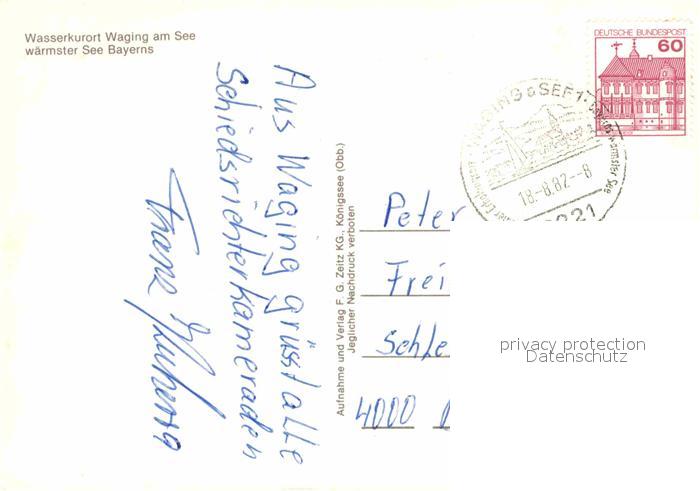 Wasserkurort Waging am See
wärmster See Bayerns
Aus Waging grüsst alle
Schiedsrichterkameraden
Franz
Aufnahme und Verlag F. G. Zeitz KG., Königssee (Obb.)
Jeglicher Nachdruck verboten
DEUTSCHE BUNDESPOST
60
WAGING a SEE 1
wärmster See
18.-8.82--8
Peter
Frei
Schle
4000
privacy protection
Datenschutz